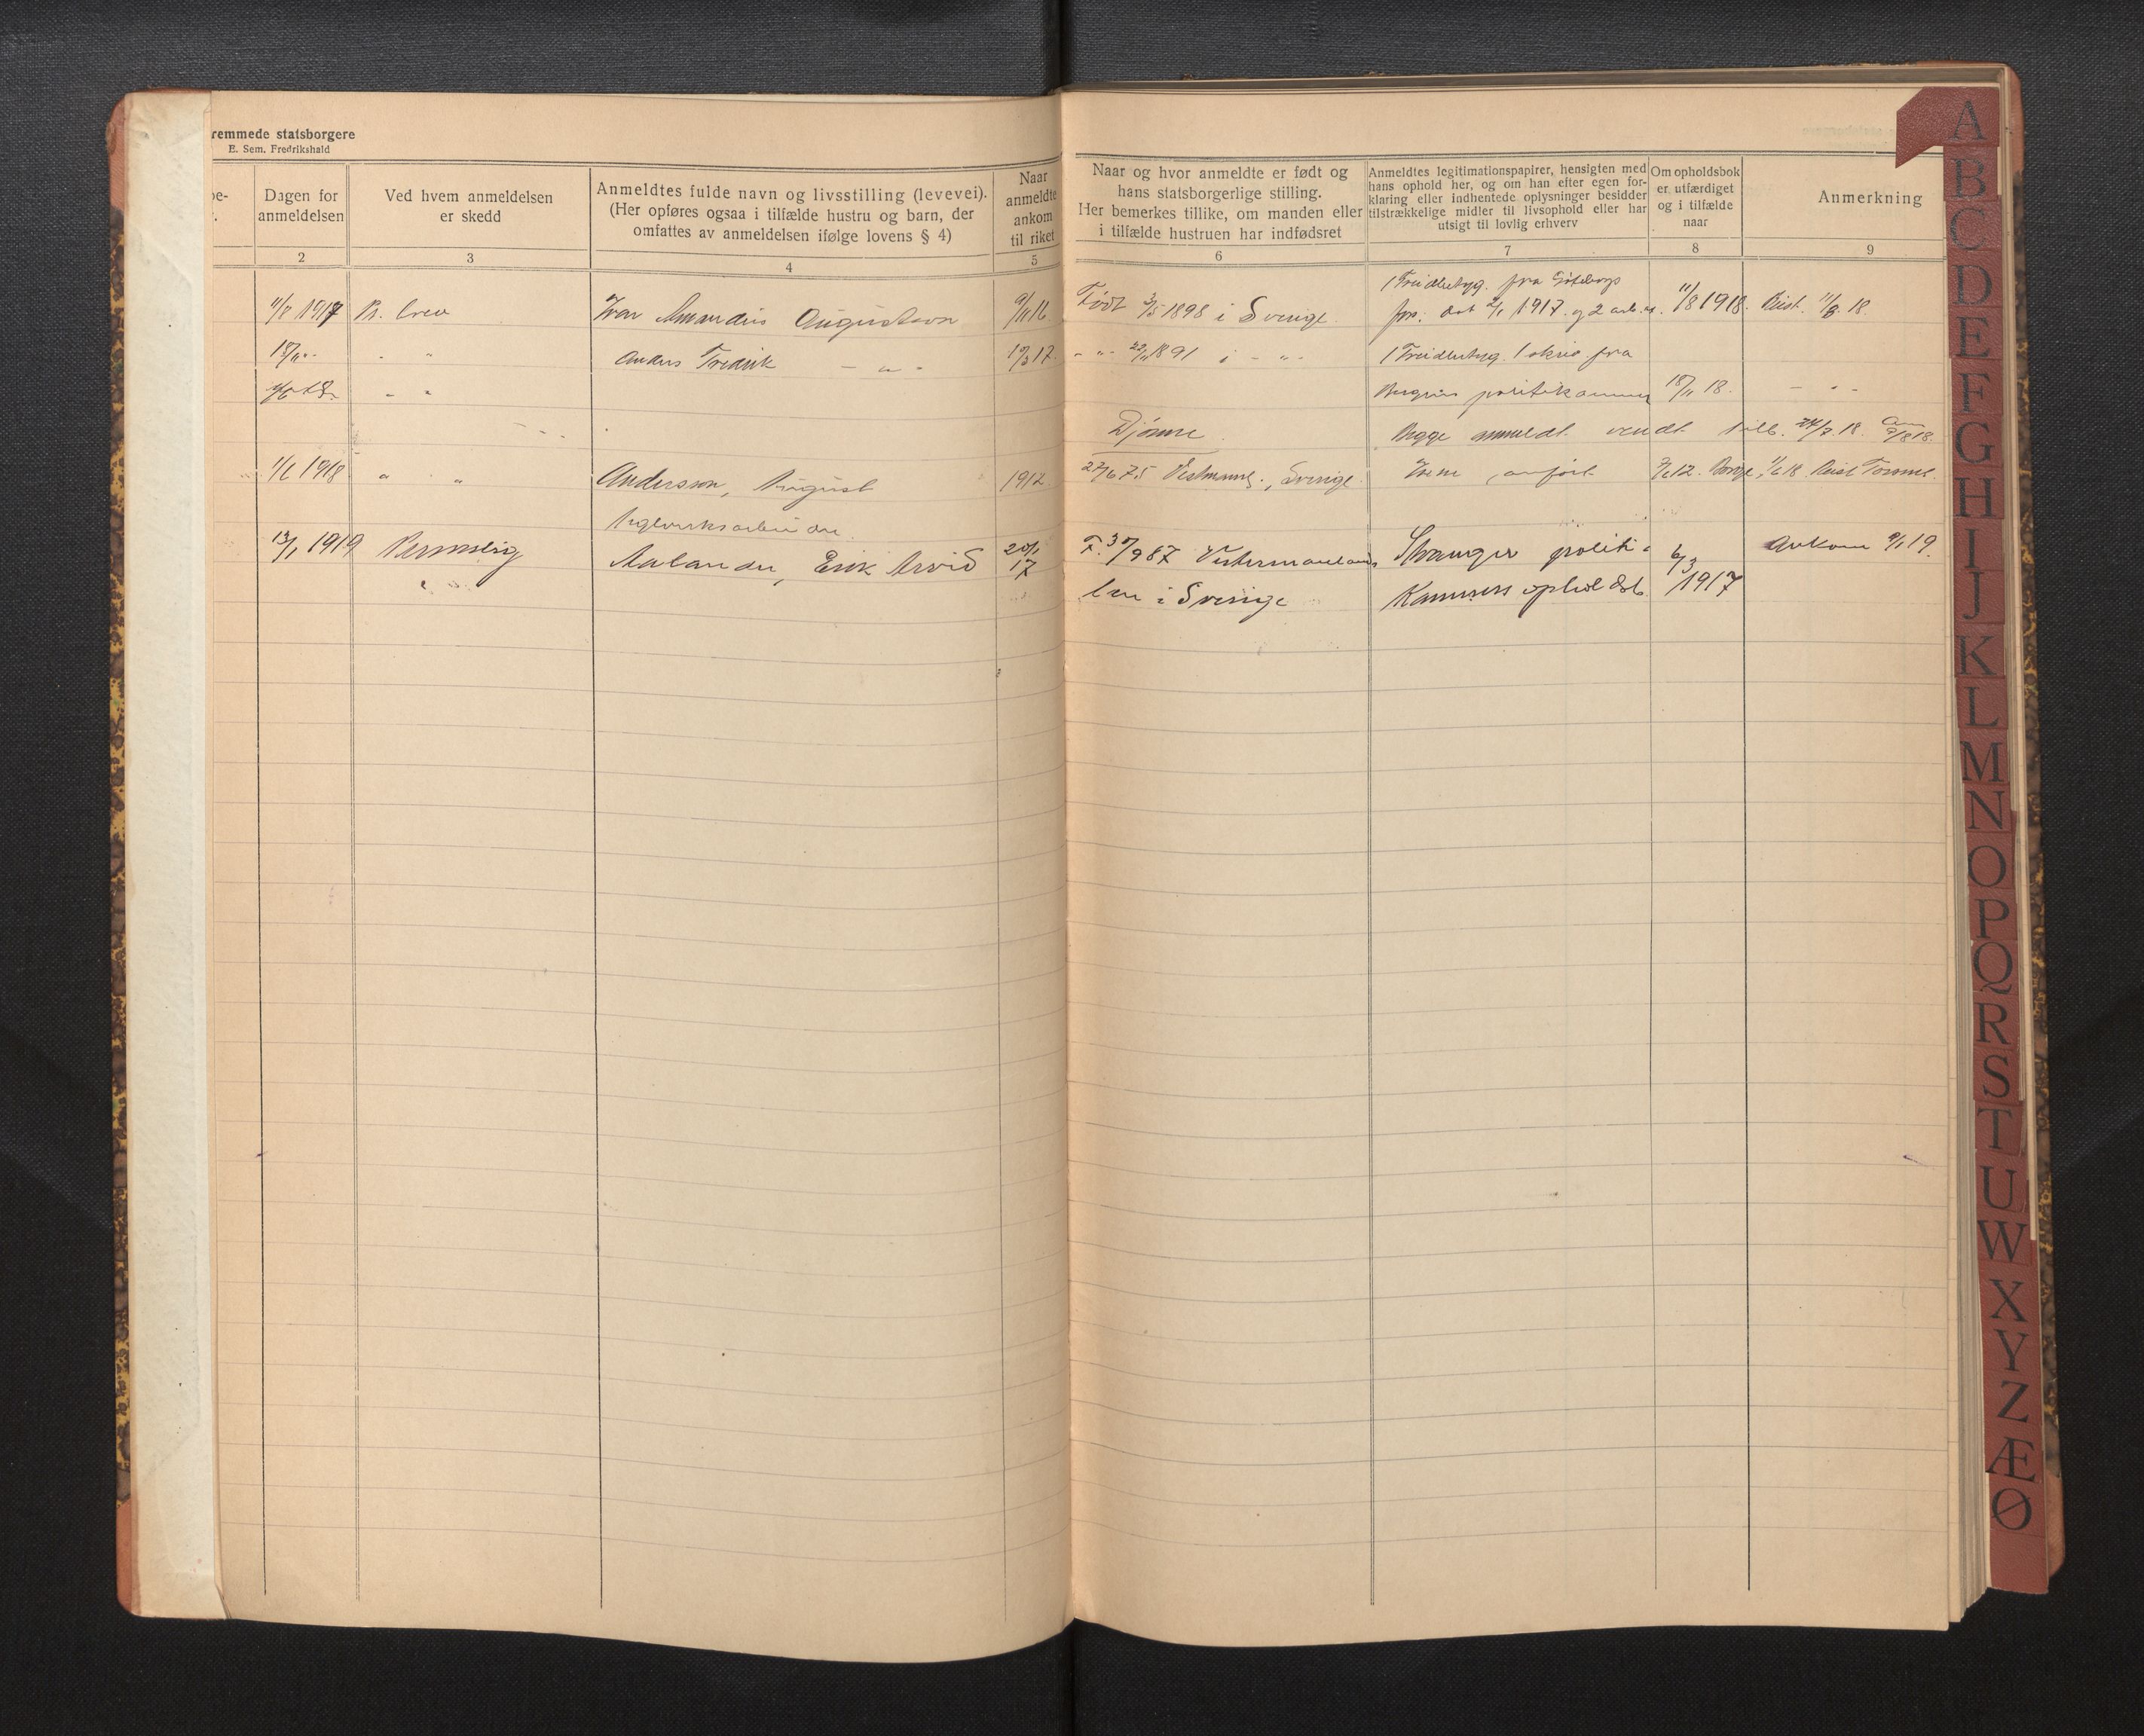 remmede statsborgere
E. Sem. Fredrikshald
Dagen for
anmeldelsen
Ved hvem anmeldelsen
er skedd
Anmeldtes fulde navn og livsstilling (levevei).
(Her opføres ogsaa i tilfælde hustru og barn, der
omfattes av anmeldelsen ifølge lovens § 4)
Naar
anmeldte
ankom
til riket
Naar og hvor anmeldte er født og
hans statsborgerlige stilling.
Her bemerkes tillike, om manden eller
i tilfælde hustruen har indfødsret
Anmeldtes legitimationspapirer, hensigten med
hans ophold her, og om han efter egen for-
klaring eller indhentede oplysninger besidder
tilstrækkelige midler til livsophold eller har
utsigt til lovlig erhverv
Om opholdsbok
er utfærdiget
og i tilfælde
naar
Anmerkning
2
3
4
5
6
7
8
9
11/8 1917
Ivar Amandus Augustson
9/11 16
Født 3/5 1898 i Sverige
fra Göteborg
1917 og 2
11/8 1918.
Reist 11/8 18.
Anders Fredrik - " -
- " - 22/11 1891 i - " -
fra
Bergens politikammer
18/11 18.
Begge anmeldt vendt tilb. 24/7 18.
1/6 1918
Andersson, August
1912
27/6 75 Vestmanl., Sverige
anført
13/1 1919
Aalander, Erik Arvid
20/1
17
F. 30/9 87 Vestermanlands
len i Sverige
Stavanger politi-
Kammers opholdsb.
6/3
1917
Ankom 9/1 19.
A
B
C
D
E
F
G
H
I
J
K
L
M
N
O
P
Q
R
S
T
U
W
X
Y
Z
Æ
Ø